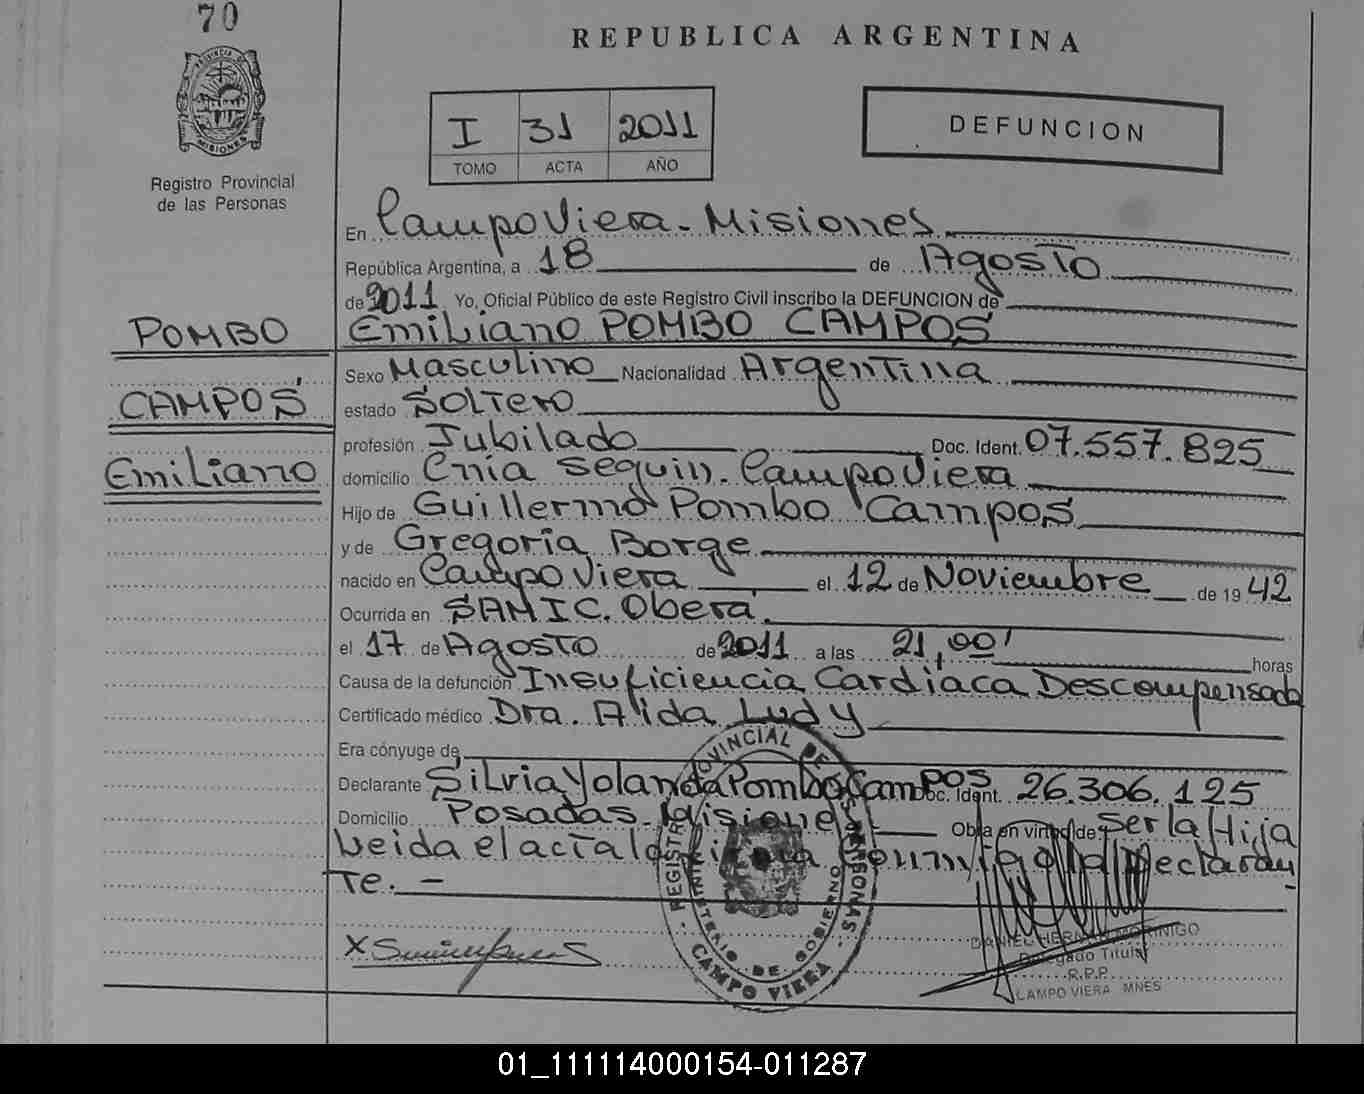 70
REPUBLICA ARGENTINA
PROVINCIA DE
MISIONES
I 31 2011
TOMO ACTA AÑO
DEFUNCION
Registro Provincial
de las Personas
En Campo Viera - Misiones
República Argentina, a 18 de Agosto
de 2011 Yo, Oficial Público de este Registro Civil inscribo la DEFUNCION de
POMBO
CAMPOS
Emiliano
Emiliano POMBO CAMPOS
Sexo Masculino Nacionalidad Argentina
estado SOLTero
profesión Jubilado Doc. Ident. 07.557.825
domicilio Cnia Seguin. Campo Viera
Hijo de Guillermo Pombo Campos
y de Gregoria Borge
nacido en Campo Viera el 12 de Noviembre de 19 42
Ocurrida en SAMIC. Oberá.
el 17 de Agosto de 2011 a las 21,00' horas
Causa de la defunción Insuficiencia Cardíaca Descompensada
Certificado médico Dra. Aida Ludy
Era cónyuge de
Declarante Silvia Yolanda Pombo Campos Doc. Ident. 26.306.125
Domicilio Posadas. Misiones Obra en virtud de ser la Hija
Leida el acta la firma Conmigo la Declaran
Te. -
REGISTRO PROVINCIAL DE LAS PERSONAS
MINISTERIO DE GOBIERNO
- CAMPO VIERA -
X
DANIEL HERNAN MORINIGO
Delegado Titular
R.P.P.
CAMPO VIERA MNES
01_111114000154-011287